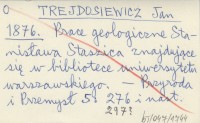 O TREJDOSIEWICZ Jan
1876. Prace geologiczne Sta-
nisława Staszica znajdujące
się w bibliotece uniwersytetu
warszawskiego. Przyroda
i Przemysł 5: 276 i nast.
297?
b/047/1744